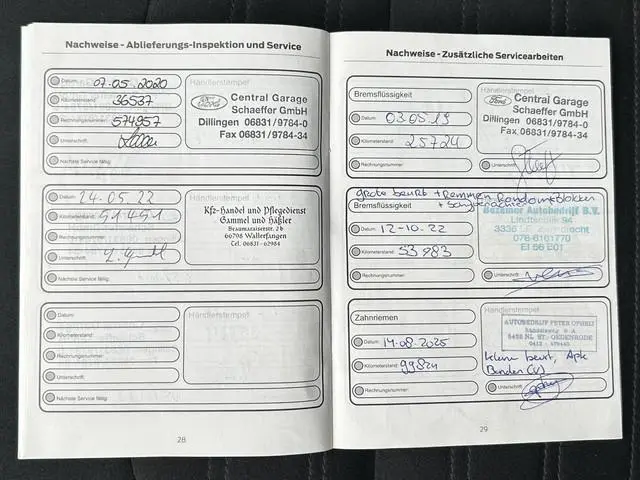 Nachweise - Ablieferungs-Inspektion und Service
Datum: 07.05.2020
Kilometerstand: 36537
Rechnungsnummer: 574957
Unterschrift:
Nächste Service fällig:
Händlerstempel
Ford
Central Garage
Schaeffer GmbH
Dillingen 06831/9784-0
Fax 06831/9784-34
Datum: 24.05.22
Kilometerstand: 51451
Rechnungsnummer:
Unterschrift:
Nächste Service fällig:
Kfz-Handel und Pflegedienst
Gammel und Häßler
Bezanmaisester. 2b
66798 Wallerfangen
Tel. 06831 - 62984
Datum:
Kilometerstand:
Rechnungsnummer:
Unterschrift:
Nächste Service fällig:
Händlerstempel
28
Nachweise - Zusätzliche Servicearbeiten
Bremsflüssigkeit
Datum: 03.05.19
Kilometerstand: 25724
Rechnungsnummer:
Händlerstempel
Ford
Central Garage
Schaeffer GmbH
Dillingen 06831/9784-0
Fax 06831/9784-34
Unterschrift:
grote beurt + Remmen Rondom + blokken
Bremsflüssigkeit
Datum: 12-10-22
Kilometerstand: 53983
Rechnungsnummer:
Bezemer Autobedrijf B.V.
078-6161770
Unterschrift:
Zahnriemen
Datum: 14-08-2025
Kilometerstand: 99824
Rechnungsnummer:
Händlerstempel
AUTOBEDRIJF PETER
5492 NL ST. OEDENRODE
klein beurt, Apk
Banden (v)
Unterschrift:
29